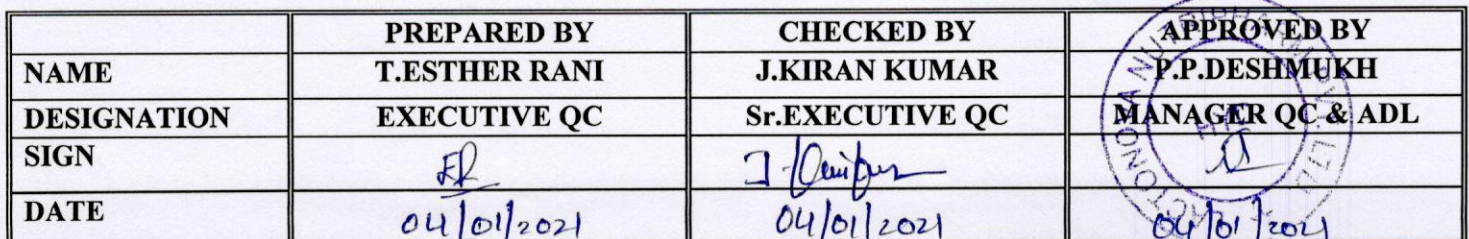 PREPARED BY CHECKED BY APPROVED BY
NAME T.ESTHER RANI J.KIRAN KUMAR P.P.DESHMUKH
DESIGNATION EXECUTIVE QC Sr.EXECUTIVE QC MANAGER QC & ADL
SIGN
DATE 04/01/2021 04/01/2021 04/01/2021